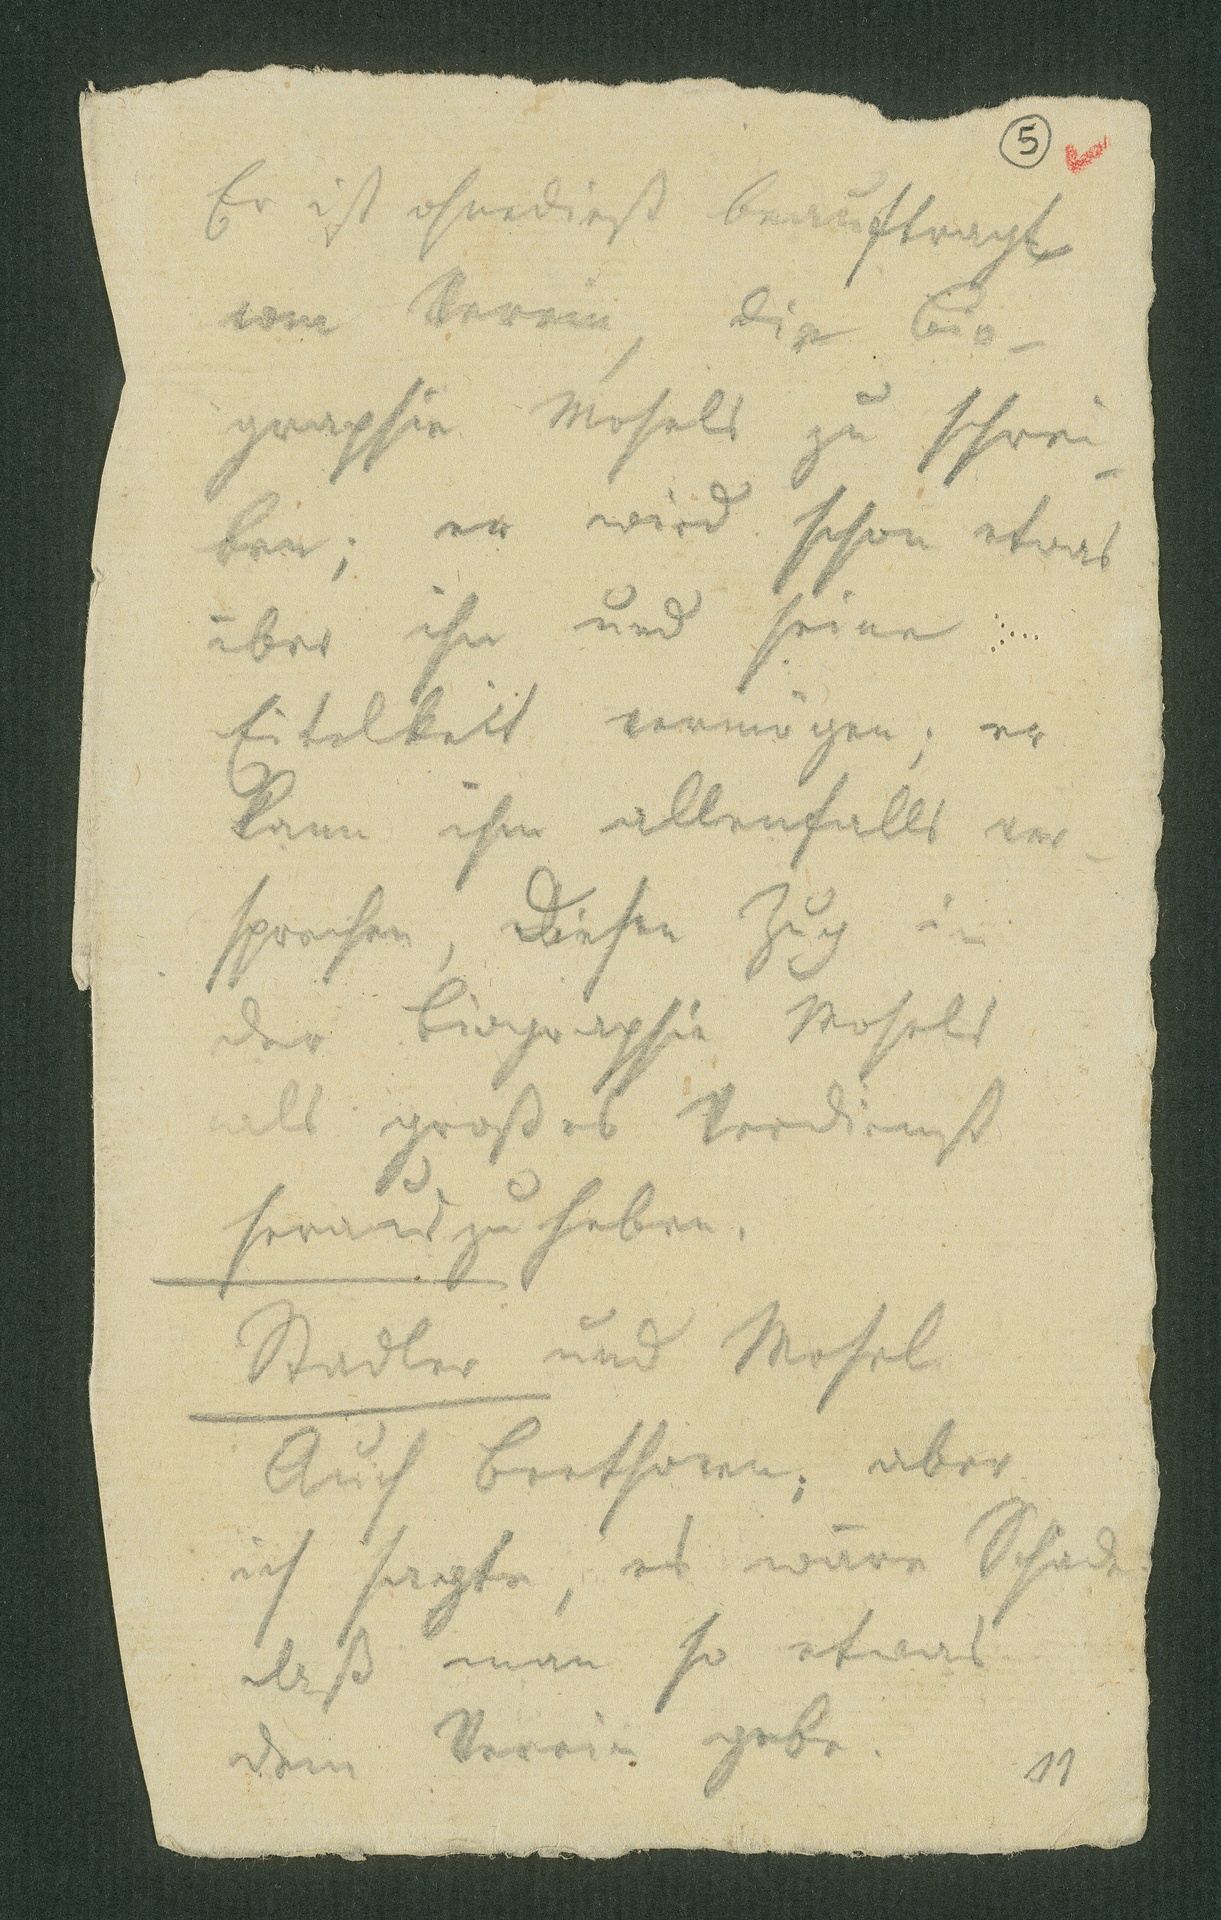 5
Er ist ohnedieß beauftragt
vom Verein, die Bio-
graphie Mosels zu schrei-
ben; er wird schon etwas
über ihn und seine
Eitelkeit vermögen; er
kann ihm allenfalls ver-
sprechen, diesen Zug in
der Biographie Mosels
als großes Verdienst
herauszuheben.
Stadler und Mosel
Auch Beethoven; aber
ich sagte, es wäre Schade
daß man so etwas
dem Verein gebe.
11